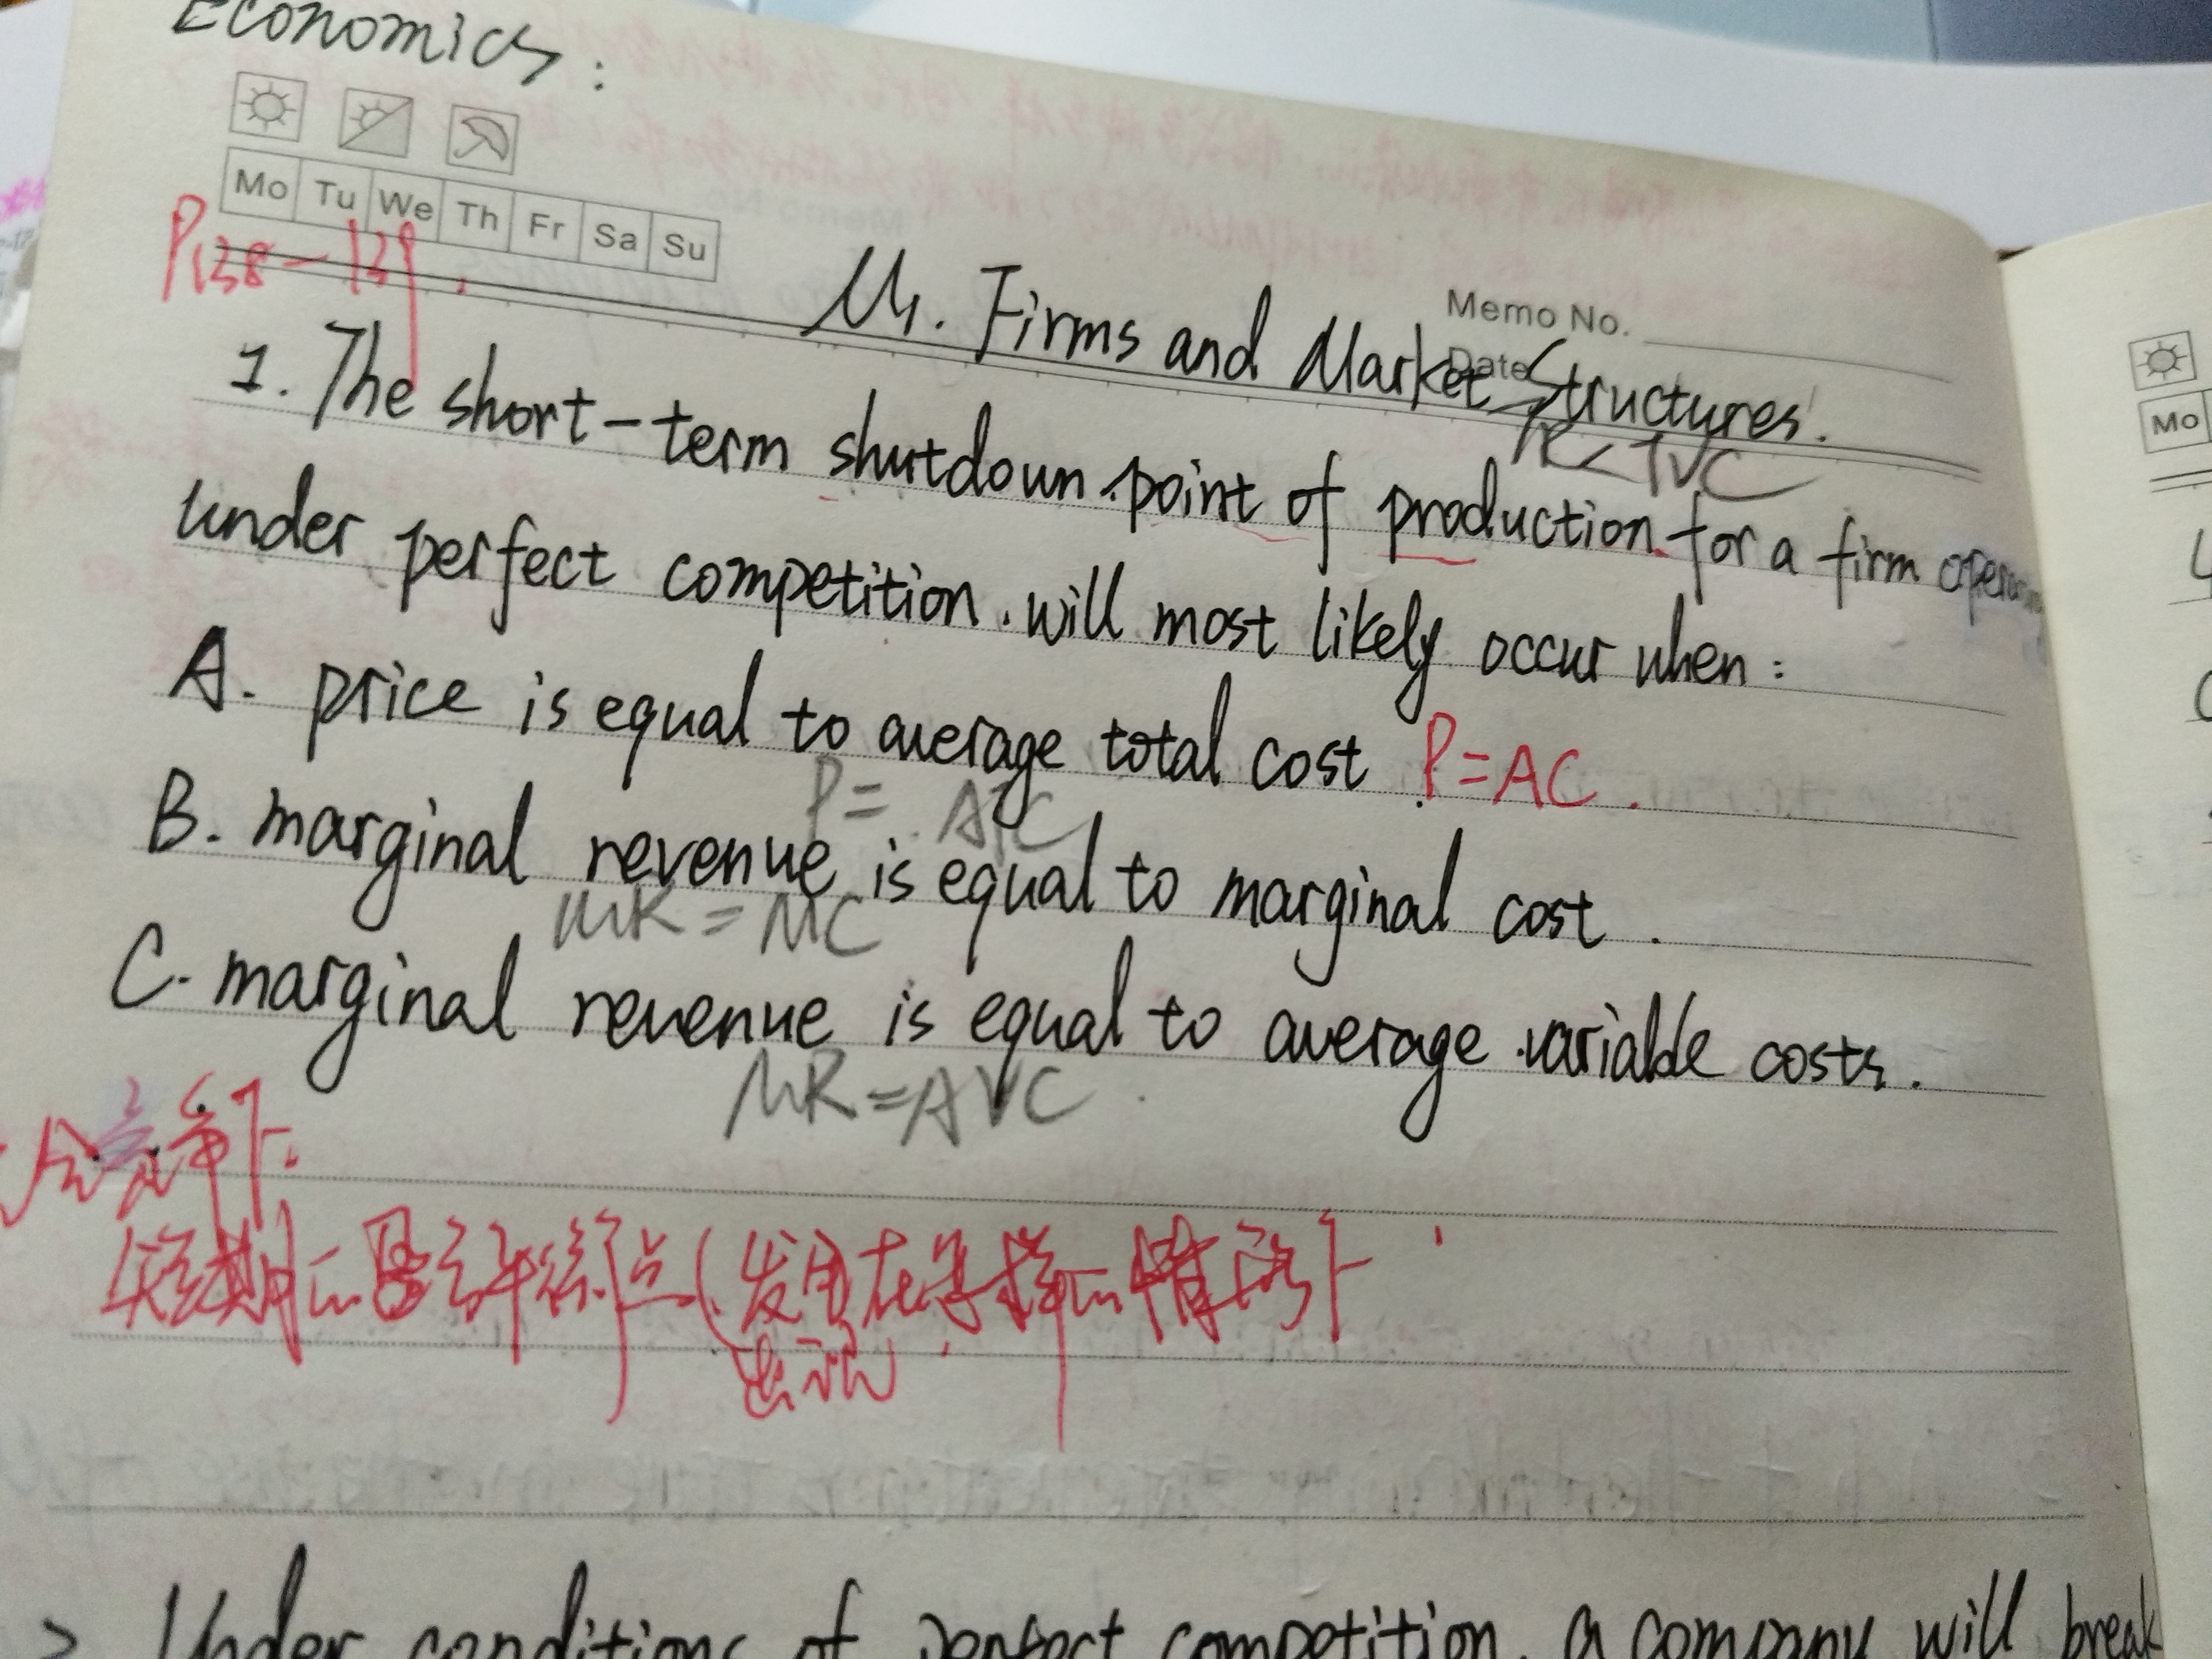 Economics:
Mo Tu We Th Fr Sa Su
P138-139.
Memo No.
Date
M1. Firms and Market Structures.
TR<TVC
1. The short-term shutdown point of production for a firm
under perfect competition will most likely occur when:
A. price is equal to average total cost P=AC.
P= ATC
B. marginal revenue is equal to marginal cost.
MR=MC
C. marginal revenue is equal to average variable costs.
MR=AVC.
竞争下.
短期的盈亏平衡点(发生在
的情况下
Mo
2 Under conditions of perfect competition, a company will break